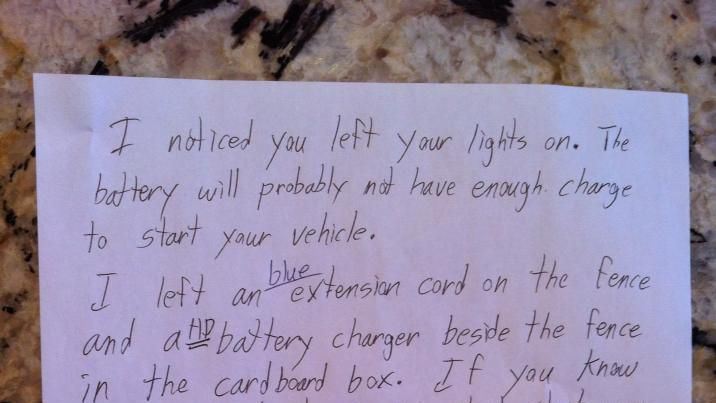 I noticed you left your lights on. The
battery will probably not have enough charge
to start your vehicle.
I left an blue extension cord on the fence
and a HD battery charger beside the fence
in the cardboard box. If you know